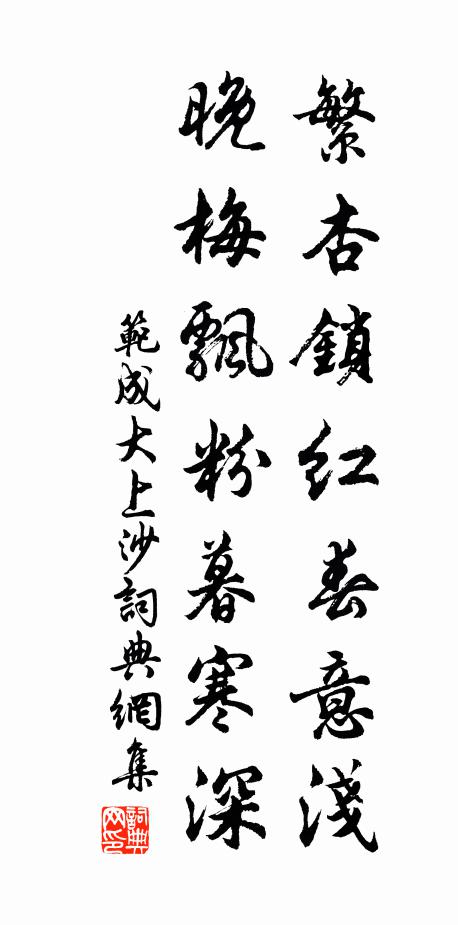 繁杏鎖紅春意淺
晚梅飄粉暮寒深
範成大上沙詞典網集
詞典網印